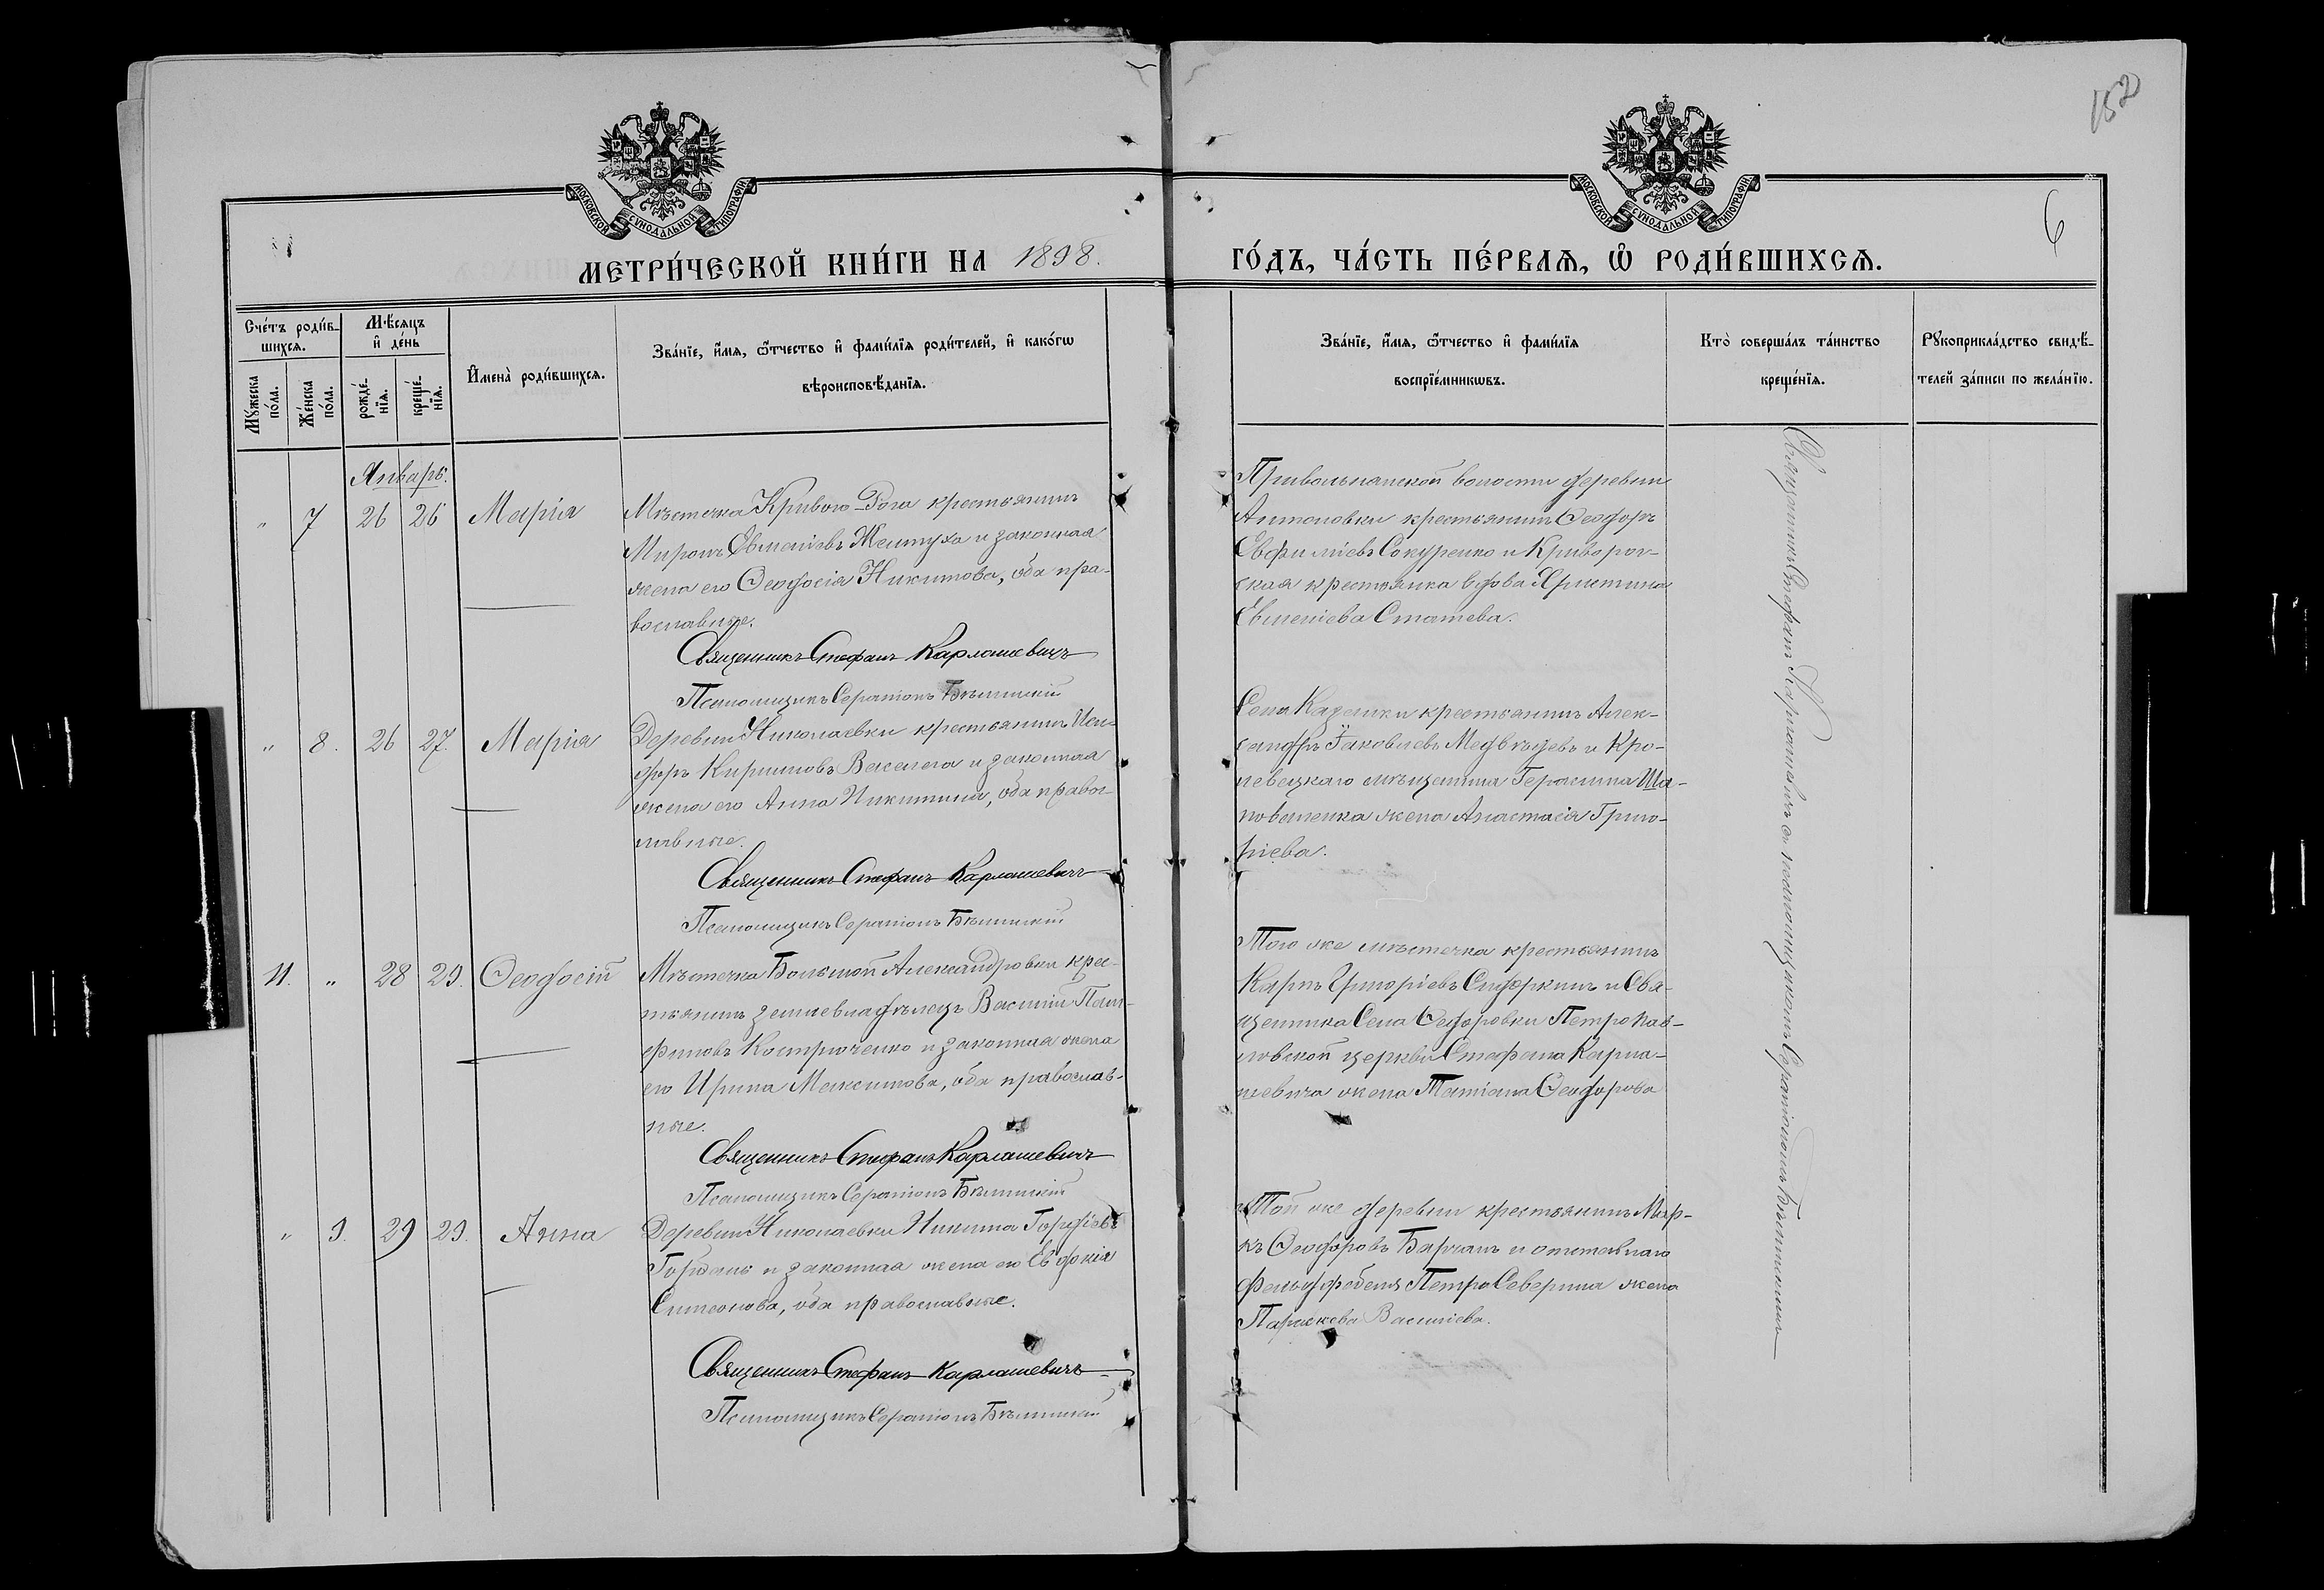 152
6
МОСКОВСКОЙ СѴНОДАЛЬНОЙ ТИПОГРАФІИ
МОСКОВСКОЙ СѴНОДАЛЬНОЙ ТИПОГРАФІИ
МЕТРИ́ЧЕСКОЙ КНИ́ГИ НА 1898.
ГО́ДЪ, ЧА́СТЬ ПЕ́РВАѦ, Ѡ҆ РОДИ́ВШИХСѦ.
Сче́тъ роди́в-
шихсѧ.
Мꙋжеска по́ла.
Же́нска по́ла.
Мѣ́сѧцъ и҆ де́нь
рожде́-нїѧ.
креще́-нїѧ.
И҆мена̀ роди́вшихсѧ.
Зва́нїе, и҆́мѧ, ѻ҆́тчество и҆ фами́лїѧ роди́телей, и҆ како́гѡ
вѣроисповѣ́данїѧ.
Зва́нїе, и҆́мѧ, ѻ҆́тчество и҆ фами́лїѧ
воспрїе́мникѡвъ.
Кто̀ соверша́лъ та́инство
креще́нїѧ.
Рꙋкоприкла́дство свидѣ́-
телей за́писи по жела́нїю.
Январь.
" 7 26 26 Марія
Мѣстечка Кривого Рога крестьянинъ
Миронъ Евменіевъ Желтуха и законная
жена его Ѳеодосія Никитова, оба пра-
вославные.
Священникъ Стефанъ Карлашевичъ
Псаломщикъ Серапіонъ Бѣлинскій
Привольнанской волости деревни
Антоновки крестьянинъ Ѳеодоръ
Евфиміевъ Сокуренко и Криворог-
ская крестьянка вдова Христина
Евменіева Статева.
" 8. 26 27. Марія
Деревни Николаевки крестьянинъ Иси-
доръ Кирилловъ Василега и законная
жена его Анна Никитина, оба правос-
лавные.
Священникъ Стефанъ Карлашевичъ
Псаломщикъ Серапіонъ Бѣлинскій
Села Казанки крестьянинъ Алек-
сандръ Іаковлевъ Медвѣдевъ и Кро-
левецкаго мѣщанина Герасима Ша-
поваленка жена Анастасія Григо-
ріева.
11. " 28 29. Ѳеодосій
Мѣстечка Большой Александровки крес-
тьянинъ землевладѣлецъ Василій Пам-
филовъ Костюченко и законная жена
его Ирина Максимова, оба православ-
ные.
Священникъ Стефанъ Карлашевичъ
Псаломщикъ Серапіонъ Бѣлинскій
Того же мѣстечка крестьянинъ
Карпъ Григоріевъ Сидоркинъ и Свя-
щенника Села Ѳедоровки Петро Пав-
ловской церкви Стефана Карла-
шевича жена Татіана Ѳеодорова
" 9. 29 29. Анна
Деревни Николаевки Никита Гордіевъ
Горбань и законная жена его Евдокія
Симеонова, оба православные.
Священникъ Стефанъ Карлашевичъ
Псаломщикъ Серапіонъ Бѣлинскій
Той же деревни крестьянинъ Мар-
къ Ѳеодоровъ Барчанъ и отставнаго
фельдфебеля Петра Северина жена
Параскева Василіева.
Священникъ Стефанъ Карлашевичъ съ псаломщикомъ Серапіономъ Бѣлинскимъ